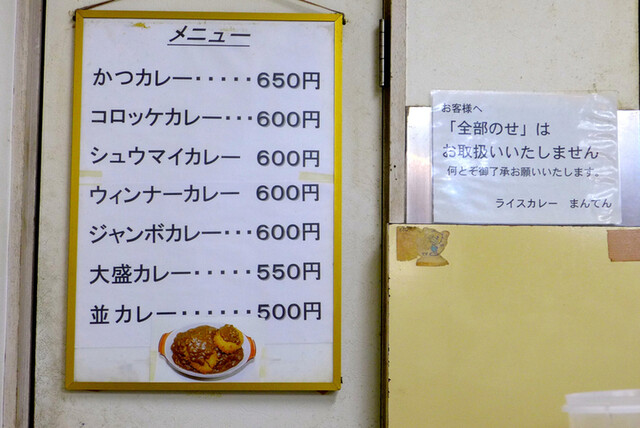 メニュー
かつカレー・・・・・650円
コロッケカレー・・・600円
シュウマイカレー 600円
ウィンナーカレー 600円
ジャンボカレー・・・600円
大盛カレー・・・・・550円
並カレー・・・・・・500円
お客様へ
「全部のせ」は
お取扱いいたしません
何とぞ御了承お願いいたします。
ライスカレー まんてん